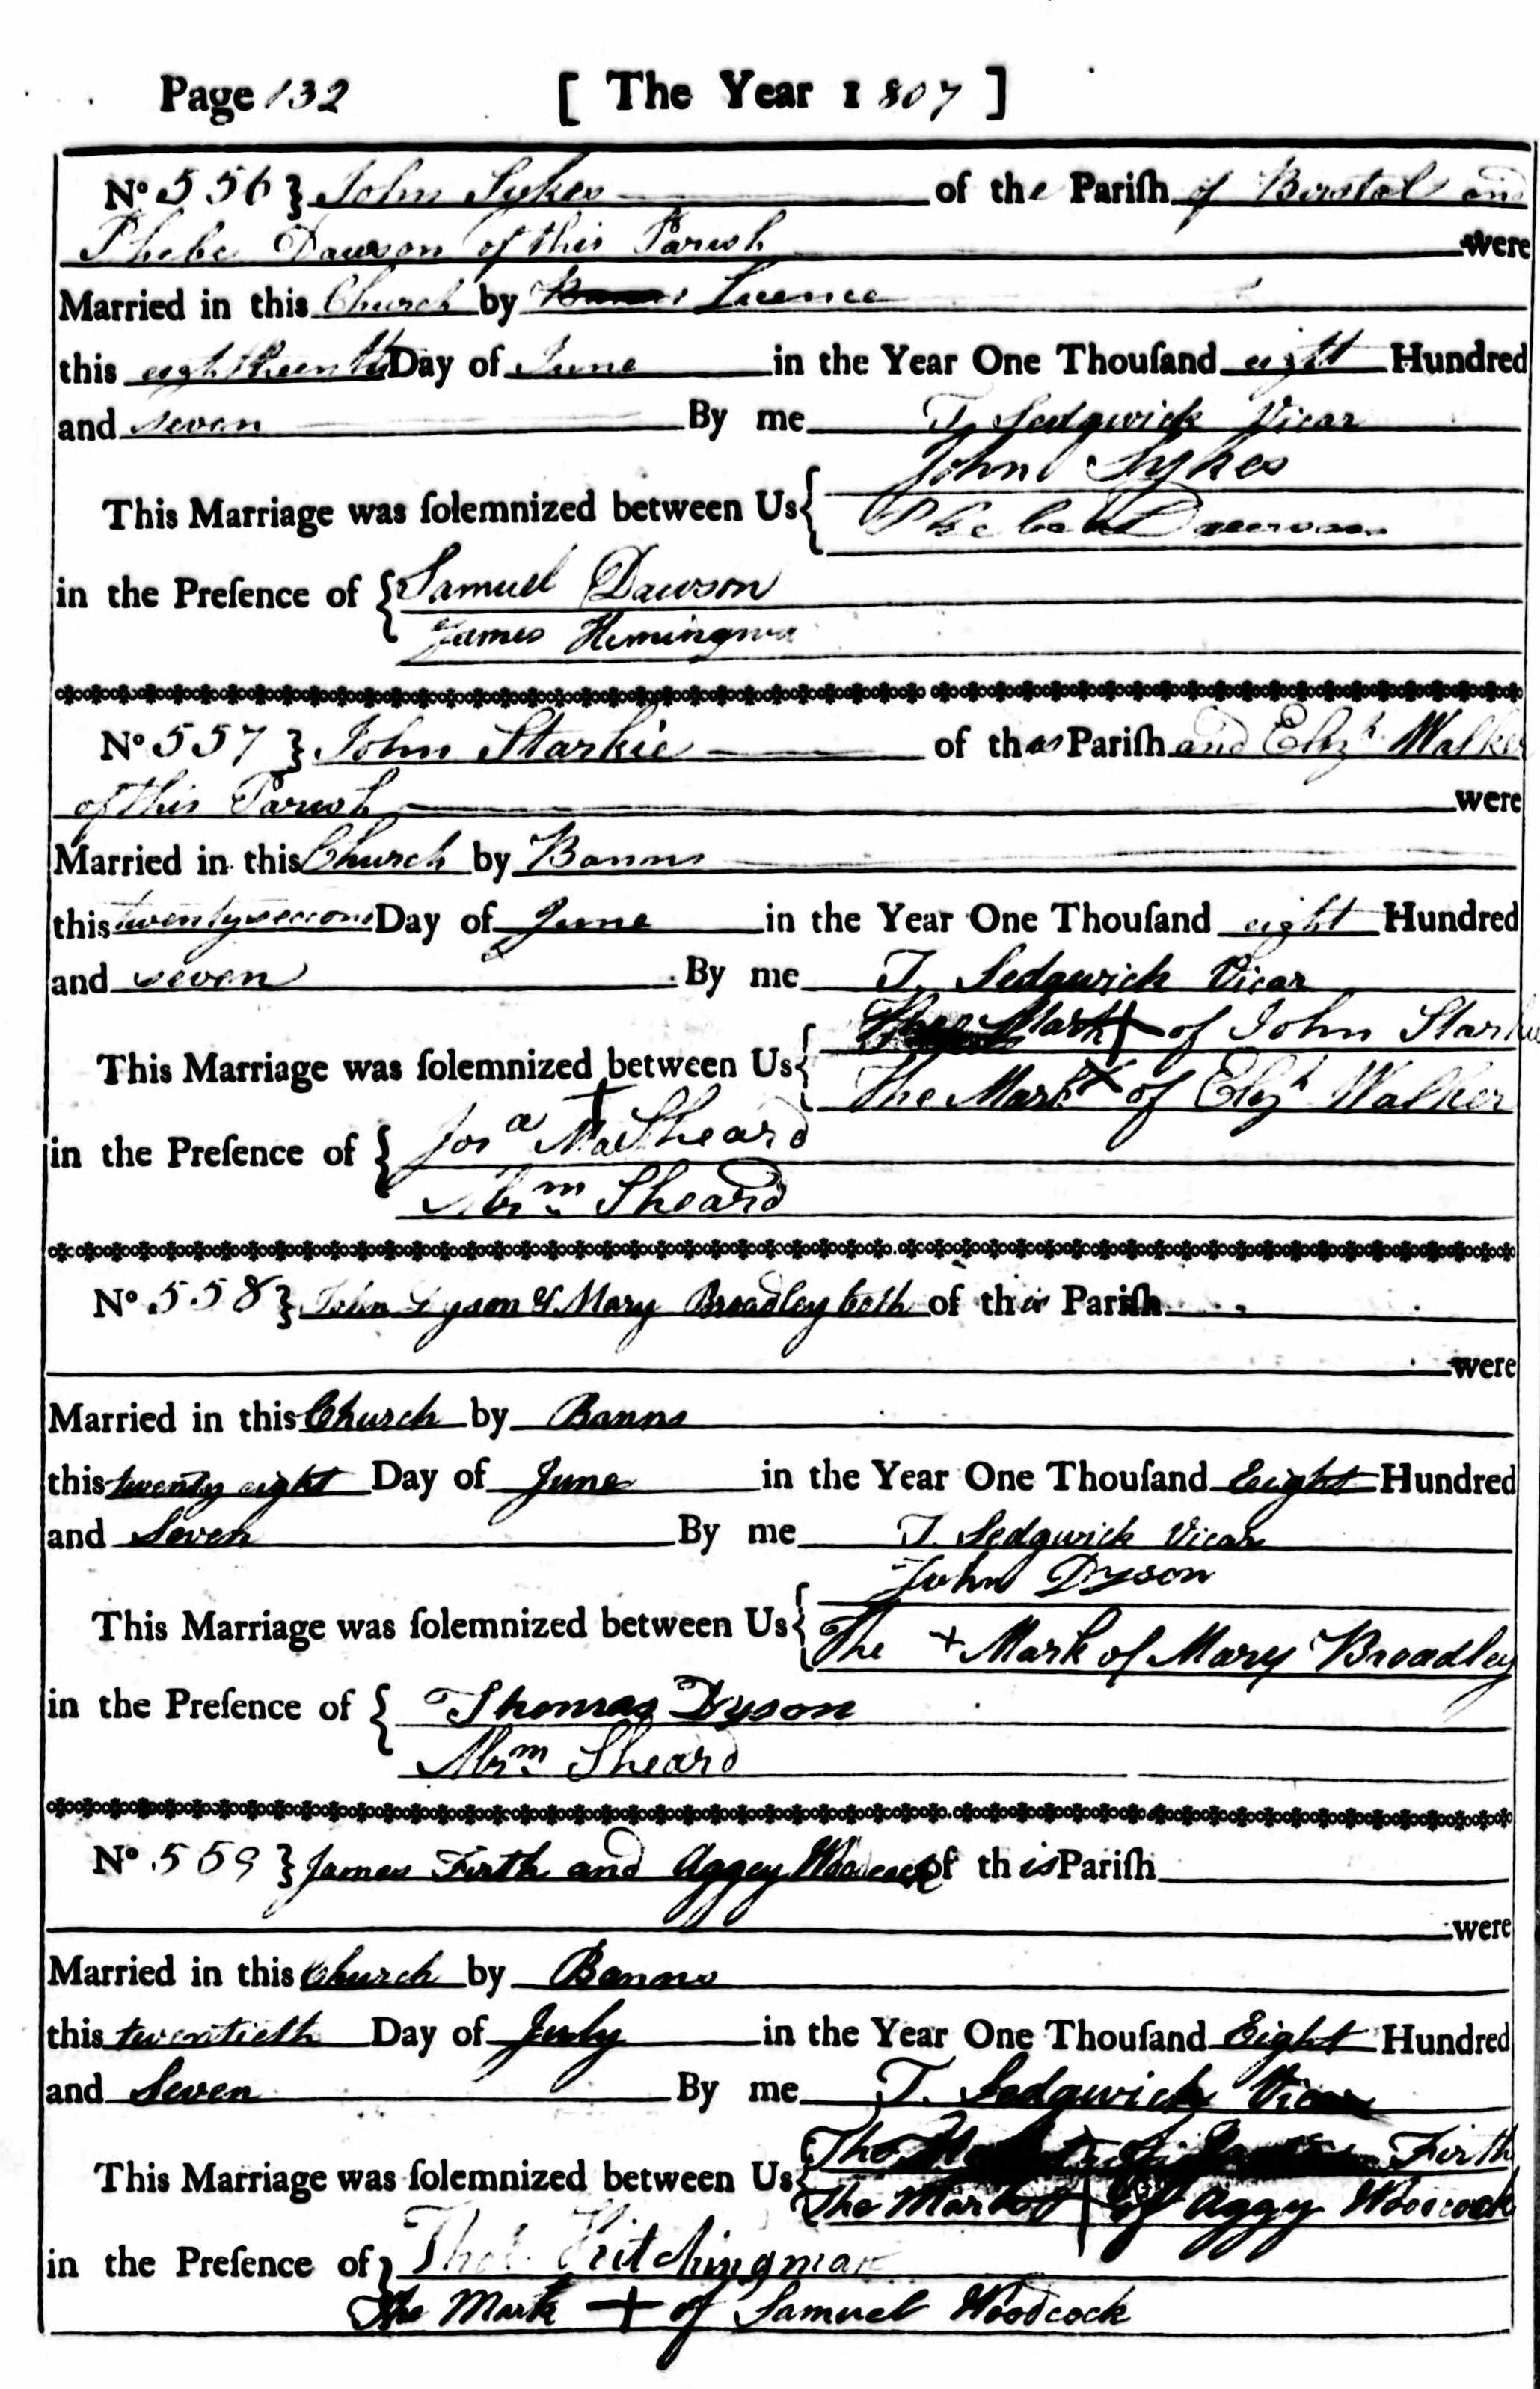 Page 132 [ The Year 1807 ]
No 556 } John Sykes of the Pariſh of Birstal and
Phebe Dawson of this Parish were
Married in this Church by Licence
this eighttheenth Day of June in the Year One Thouſand eight Hundred
and seven By me T. Sedgwick Vicar
John Sykes
This Marriage was ſolemnized between Us { Dawson
in the Preſence of { Samuel Dawson
James Hemingwa
No 557 } John Starkie of this Pariſh and Elizh Walker
of this Parish were
Married in this Church by Banns
this twentysecond Day of June in the Year One Thouſand eight Hundred
and seven By me T. Sedgwick Vicar
The Mark + of John Starkie
This Marriage was ſolemnized between Us { The Mark X of Elizh Walker
in the Preſence of { Sheard
Abrm Sheard
No 558 } John Dyson & Mary Broadley both of this Pariſh
were
Married in this Church by Banns
this twenty eight Day of June in the Year One Thouſand Eeight Hundred
and Seven By me T. Sedgwick Vicar
John Dyson
This Marriage was ſolemnized between Us { The + Mark of Mary Broadley
in the Preſence of { Thomas Dyson
Abrm Sheard
No 559 } James Firth and Aggey Woodcock of this Pariſh
were
Married in this Church by Banns
this twentieth Day of July in the Year One Thouſand Eight Hundred
and Seven By me T. Sedgwick Vicar
The Firth
This Marriage was ſolemnized between Us { The Mark + of Aggy Woodcock
in the Preſence of } Kitchingman
The Mark + of Samuel Woodcock